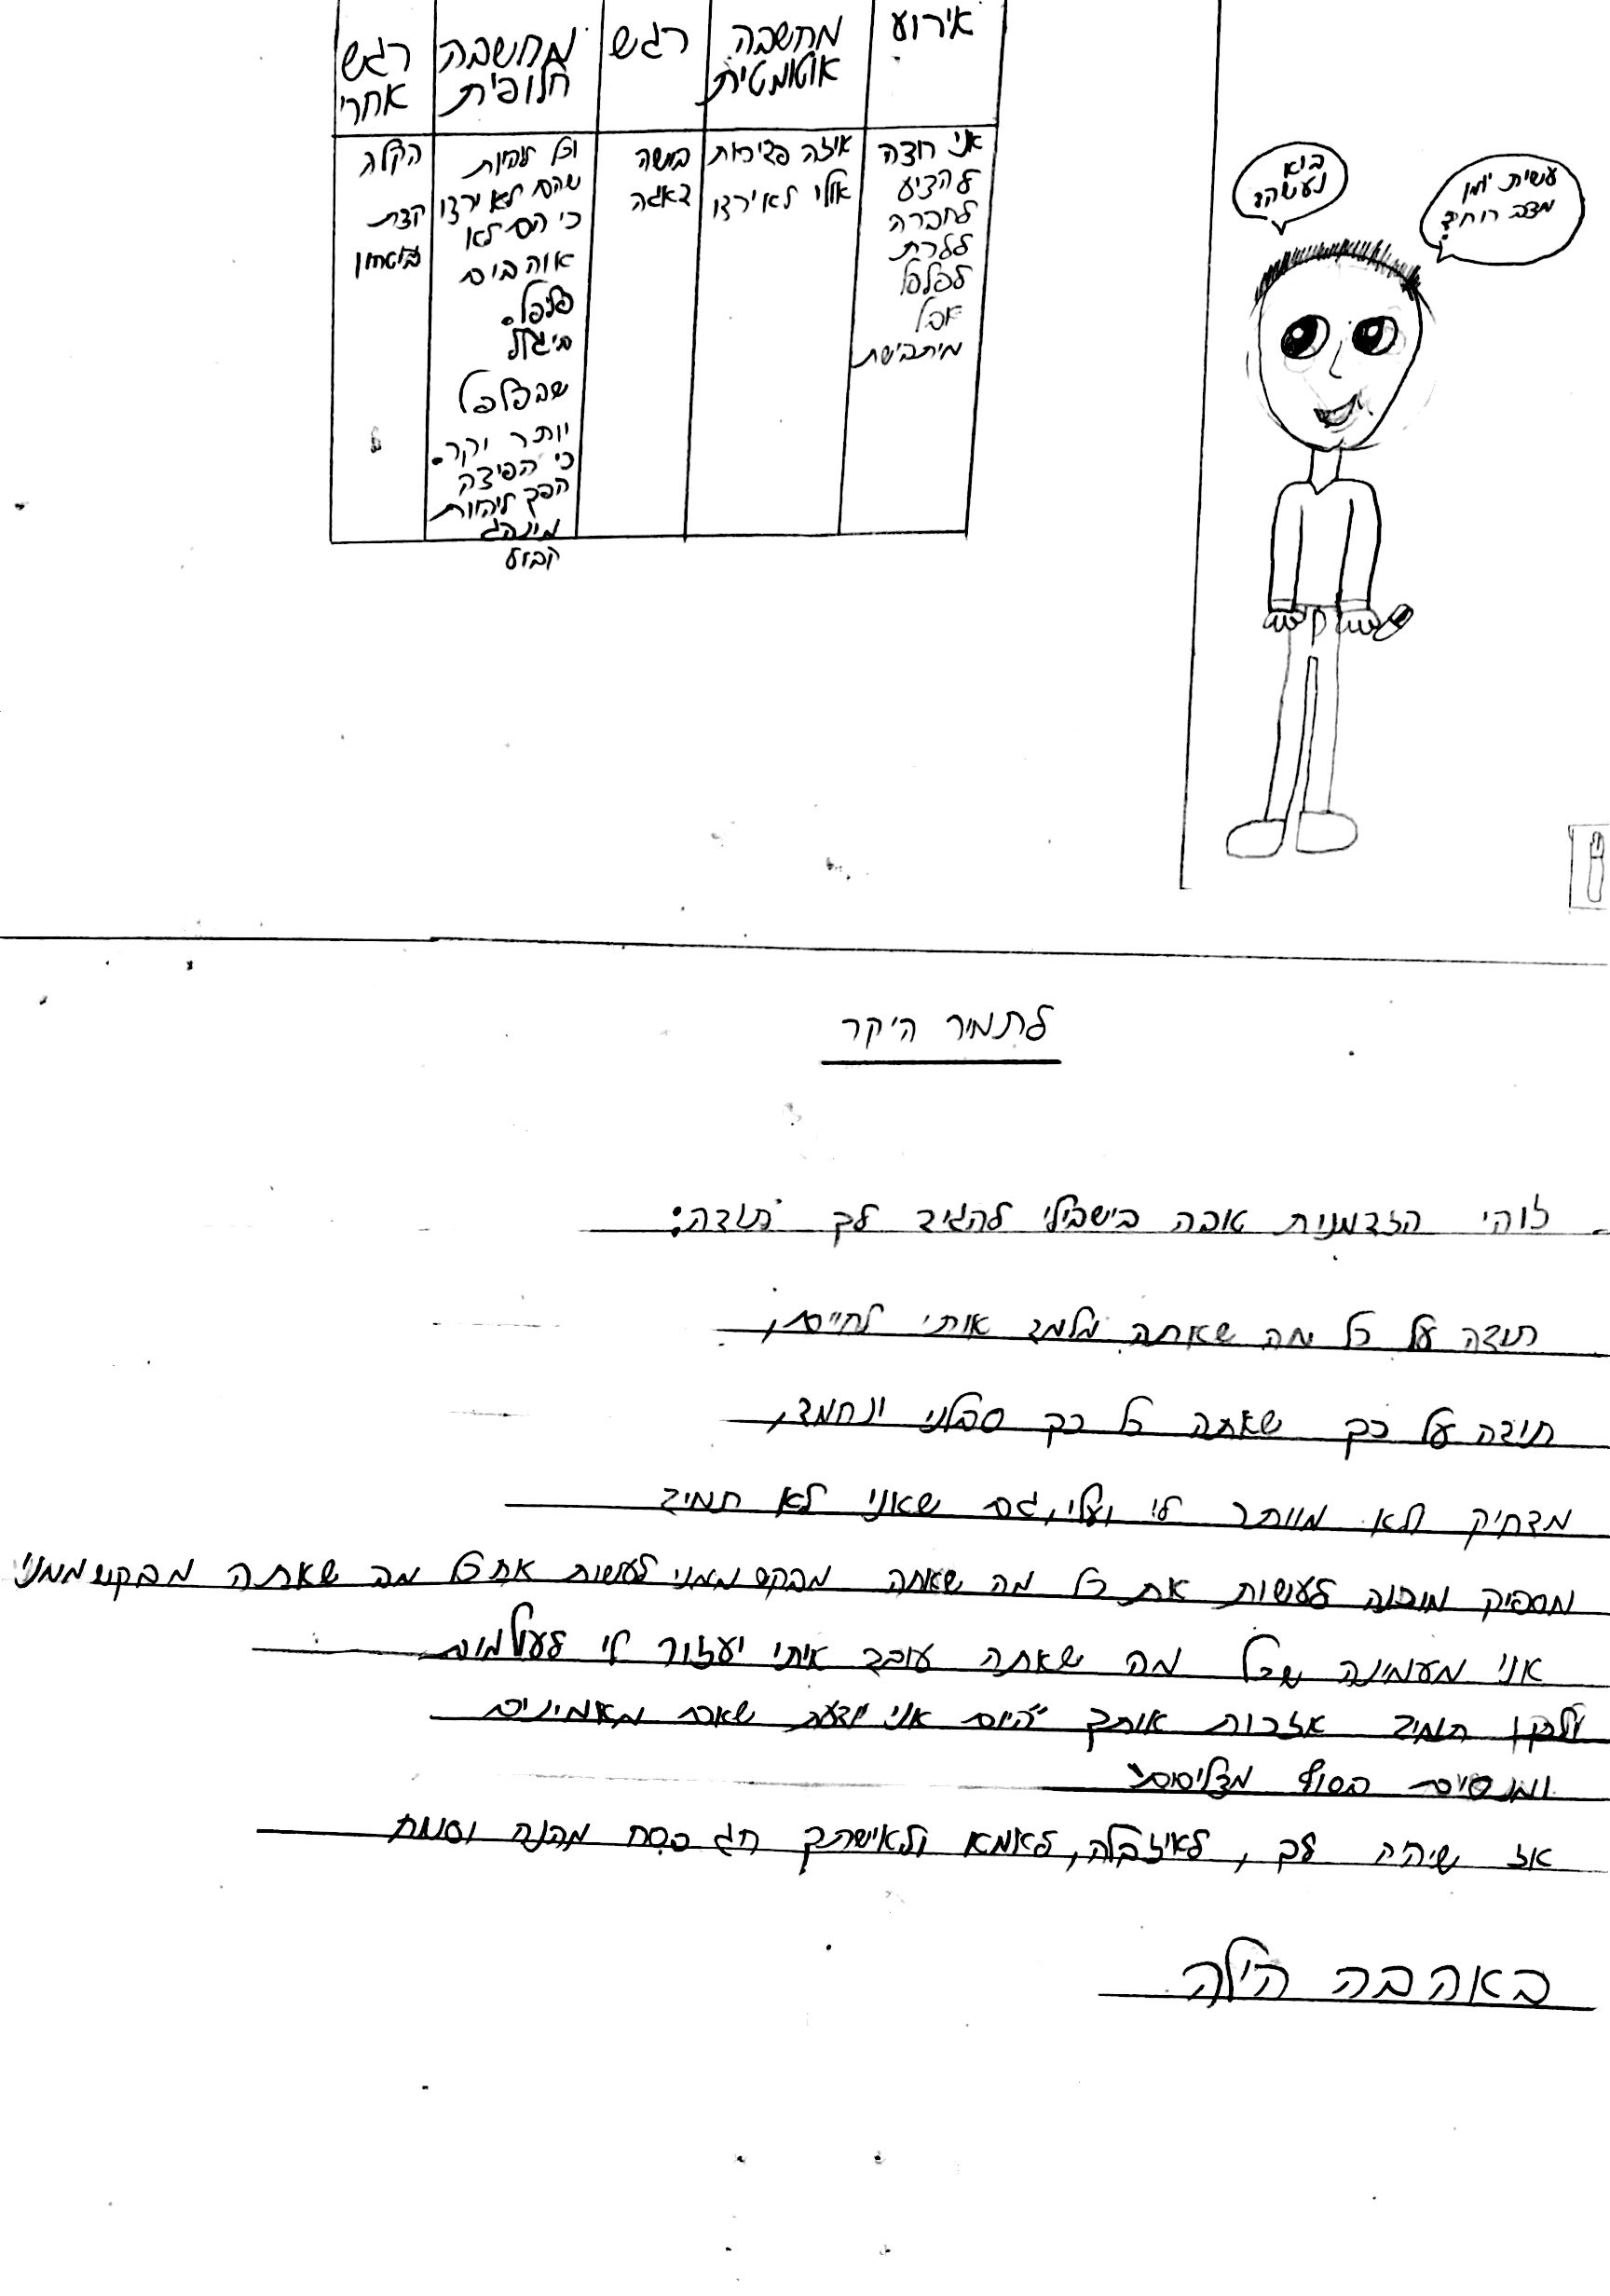 אירוע
מחשבה
אוטומטית
רגש
מחשבה
חלופית
רגש
אחרי
אני רוצה
להציע
לחברה
ללכת
לפלפל
אבל
מיתביישת
איזה פדיחות
אולי לא ירצו
בושה
דאגה
יכל להיות
שהם לא ירצו
כי הם לא
אוהבים
פלפל.
ביגלל
שבפלפל
יותר יקר.
כי הפיצה
הפך ליהיות
מינהג
קבוע
הקלה
קצת
ביטחון
עשית יומן
מצב רוח?
בוא
נעשה
לתמיר היקר
זוהי הזדמנות טובה בישבילי להגיד לך תודה:
תודה על כל מה שאתה מלמד אותי לחיים,
תודה על כך שאתה כל כך סבלני ונחמד,
מצחיק ולא מוותר לי ועלי, גם שאני לא תמיד
מספיק מוכנה לעשות את כל מה שאתה מבקש ממני לעשות את כל מה שאתה מבקש ממני
אני מעמינה שכל מה שאתה עובד איתי יעזור לי לעולמים
ולכן תמיד אזכור אותך "היום אני יודעת שאם מאמינים
ומנסים בסוף מצליחים"
אז שיהיה לך, לאיזבלה, לאמא ולאישתך חג פסח מהנה ושמח
באהבה הילה